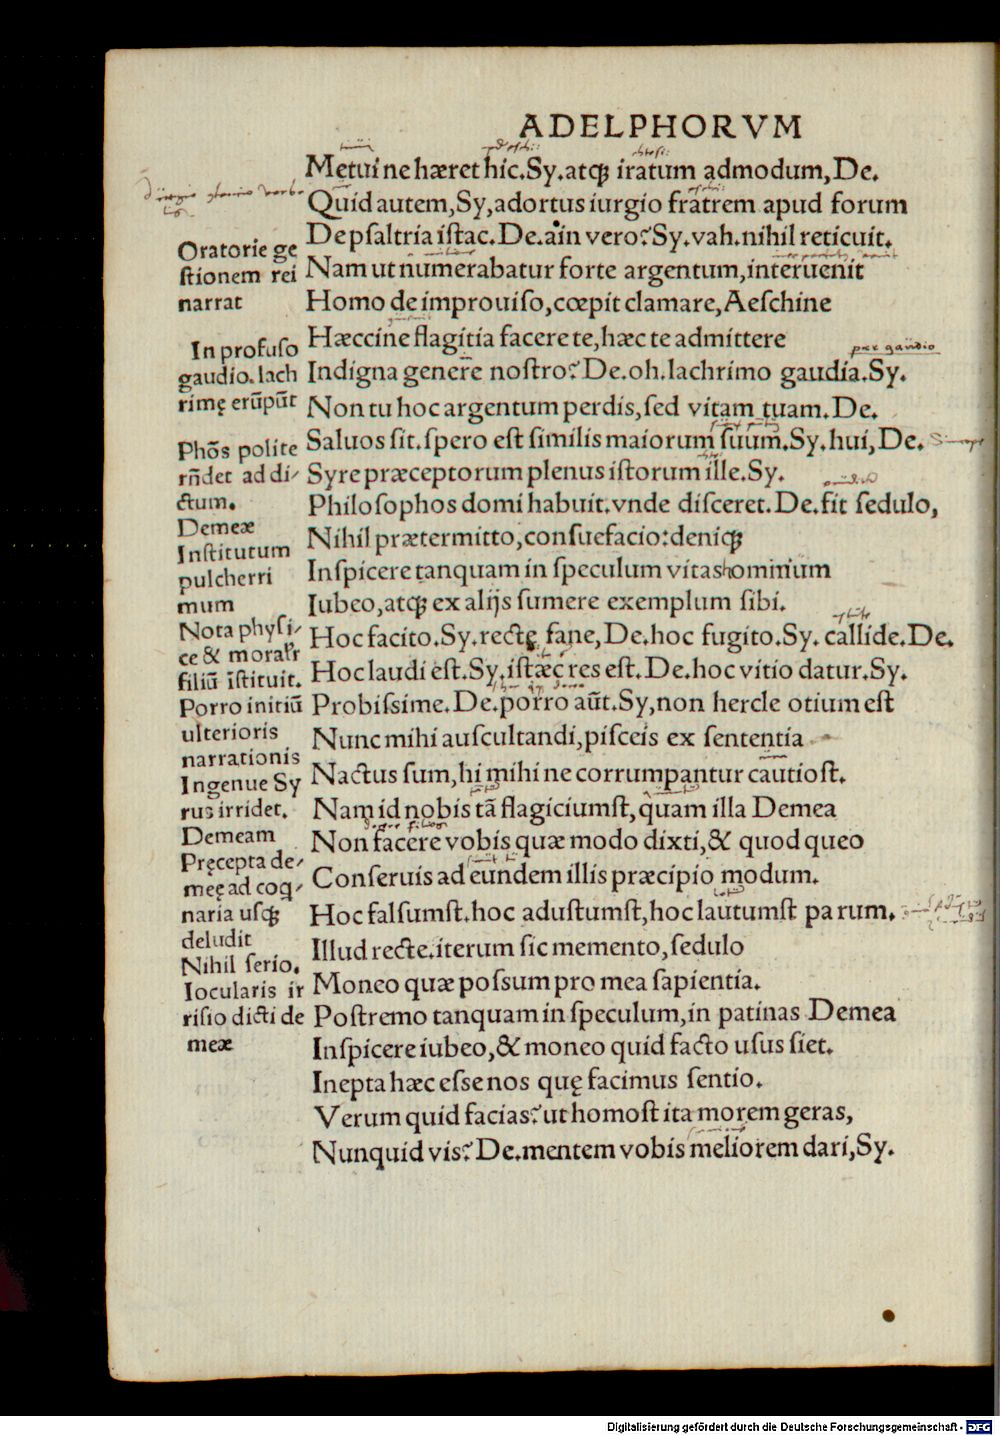 ADELPHORVM
Metui ne hæret hic.Sy.atqꝫ iratum admodum,De.
Quid autem,Sy,adortus iurgio fratrem apud forum
De psaltria istac.De.ain vero?Sy.vah.nihil reticuit.
Nam ut numerabatur forte argentum,interuenit
Homo de improuiso,cœpit clamare,Aeschine
Hæccine flagitia facere te,hæc te admittere
per gaudio
Indigna genere nostro?De.oh.lachrimo gaudia.Sy.
Non tu hoc argentum perdis,sed vitam tuam.De.
Saluos sit.spero est similis maiorum suum.Sy.hui,De.
Syre præceptorum plenus istorum ille.Sy.
Philosophos domi habuit.vnde disceret.De.fit sedulo,
Nihil prætermitto,consuefacio:deniqꝫ
Inspicere tanquam in speculum vitas hominum
Iubeo,atqꝫ ex alijs sumere exemplum sibi.
Hoc facito.Sy.rectę sane,De.hoc fugito.Sy. callide.De.
Hoc laudi est.Sy.istæc res est.De.hoc vitio datur.Sy.
Probissime.De.porro aūt.Sy,non hercle otium est
Nunc mihi auscultandi,pisceis ex sententia
Nactus sum,hi mihi ne corrumpantur cautiost.
Nam id nobis tā flagiciumst,quam illa Demea
Non facere vobis quæ modo dixti,& quod queo
Conseruis ad eundem illis præcipio modum.
Hoc falsumst.hoc adustumst,hoc lautumst parum.
Illud recte.iterum sic memento,sedulo
Moneo quæ possum pro mea sapientia.
Postremo tanquam in speculum,in patinas Demea
Inspicere iubeo,& moneo quid facto usus siet.
Inepta hæc esse nos quę facimus sentio.
Verum quid facias?ut homost ita morem geras,
Nunquid vis?De.mentem vobis meliorem dari,Sy.
Oratorie ge
stionem rei
narrat
In profuso
gaudio.lach
rimę erūpūt
Phōs polite
rñdet ad di-
ctum.
Demeæ
Institutum
pulcherri
mum
Nota physi-
ce & moralr̃
filiū īstituit.
Porro initiū
ulterioris
narrationis
Ingenue Sy
rus irridet.
Demeam
Pręcepta de-
męę ad coq-
naria usqꝫ
deludit
Nihil serio.
Iocularis ir
risio dicti de
meæ
Digitalisierung gefördert durch die Deutsche Forschungsgemeinschaft - DFG